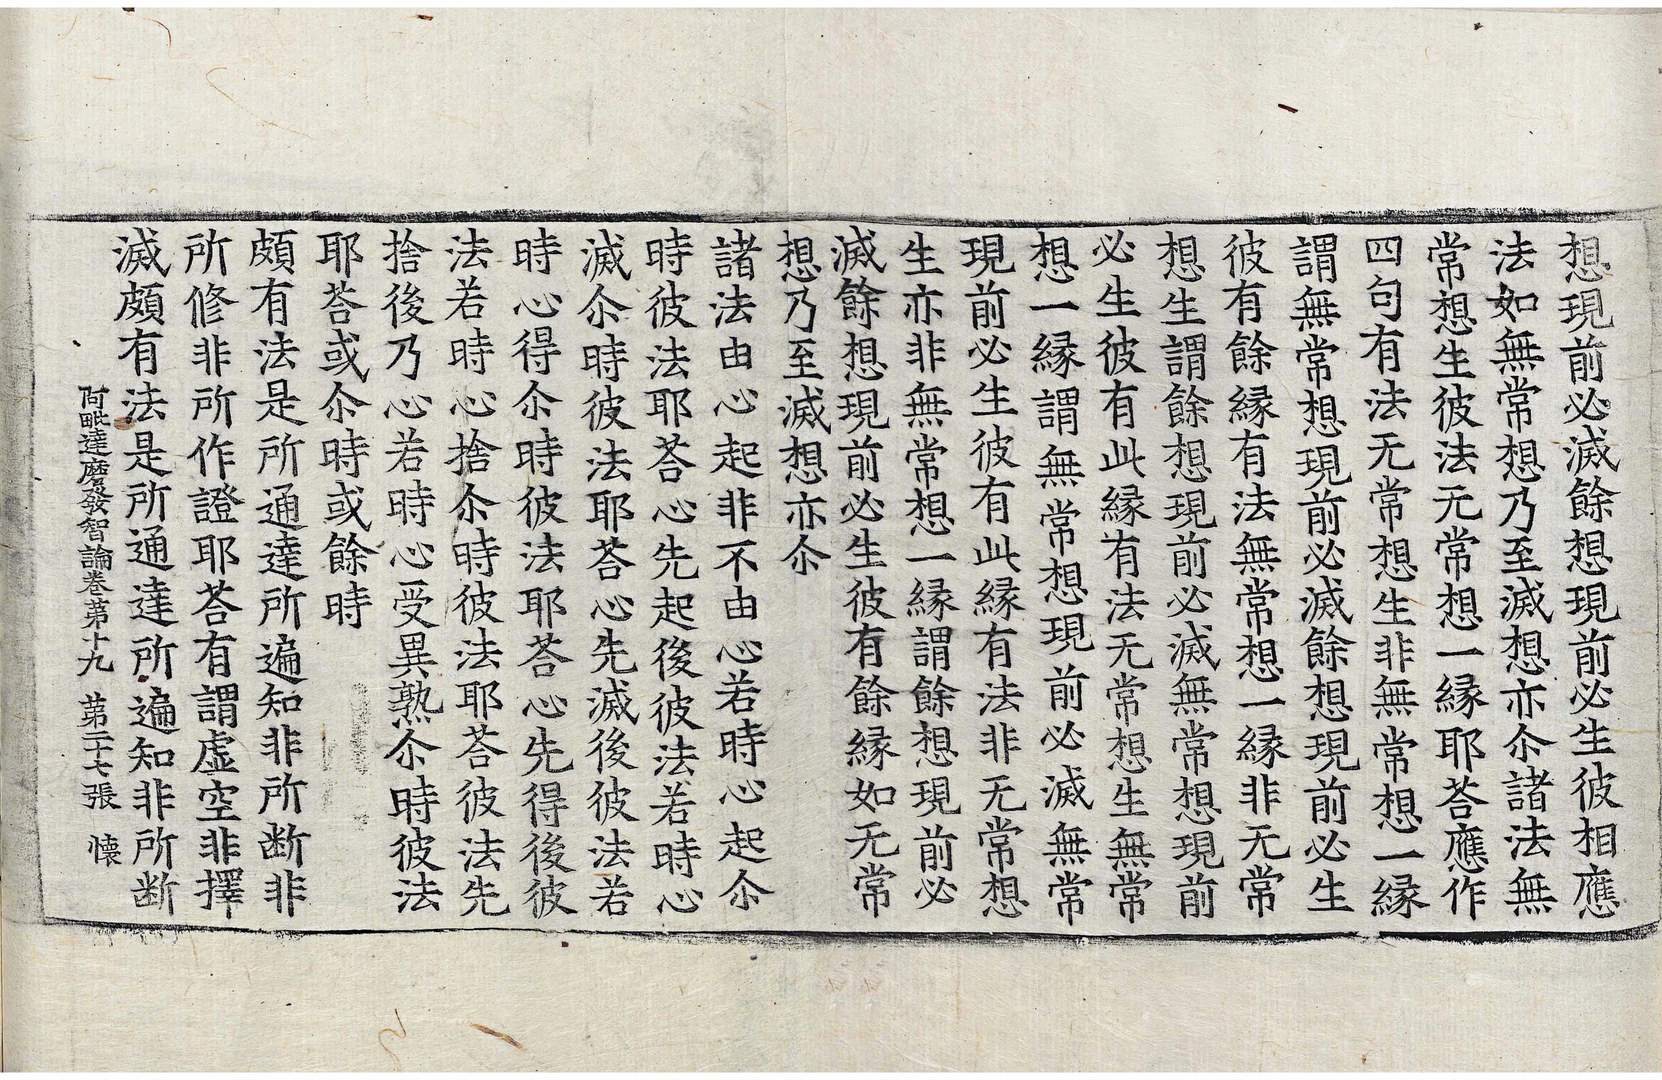 想現前必滅餘想現前必生彼相應
法如無常想乃至滅想亦尒諸法無
常想生彼法无常想一縁耶荅應作
四句有法无常想生非無常想一縁
謂無常想現前必滅餘想現前必生
彼有餘縁有法無常想一縁非无常
想生謂餘想現前必滅無常想現前
必生彼有此縁有法无常想生無常
想一縁謂無常想現前必滅無常
現前必生彼有此縁有法非无常想
生亦非無常想一縁謂餘想現前必
滅餘想現前必生彼有餘縁如无常
想乃至滅想亦尒
諸法由心起非不由心若時心起尒
時彼法耶荅心先起後彼法若時心
滅尒時彼法耶荅心先滅後彼法若
時心得尒時彼法耶荅心先得後彼
法若時心捨尒時彼法耶荅彼法先
捨後乃心若時心受異熟尒時彼法
耶荅或尒時或餘時
頗有法是所通達所遍知非所断非
所修非所作證耶荅有謂虚空非擇
滅頗有法是所通達所遍知非所断
阿毗達磨發智論卷苐十九　苐二十七張　懐